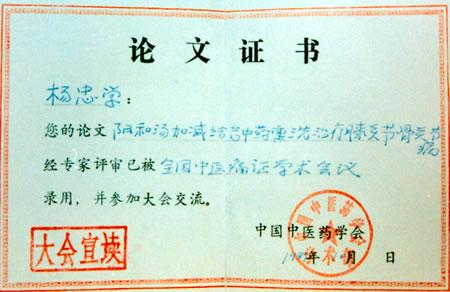 论文证书
杨忠学：
您的论文阳和汤加减结合中药熏洗治疗膝关节骨关节病
经专家评审已被全国中医痛证学术会议
录用，并参加大会交流。
中国中医药学会
年 月 日
大会宣读
中国中医药学会
学术部